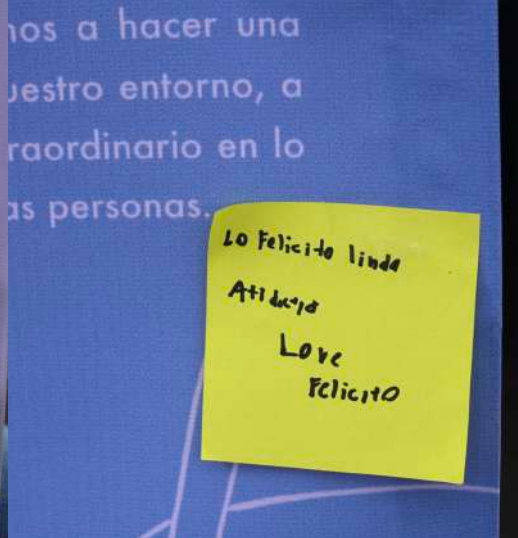 nos a hacer una
uestro entorno, a
raordinario en lo
as personas.
Lo Felicito linda
Love
Felicito